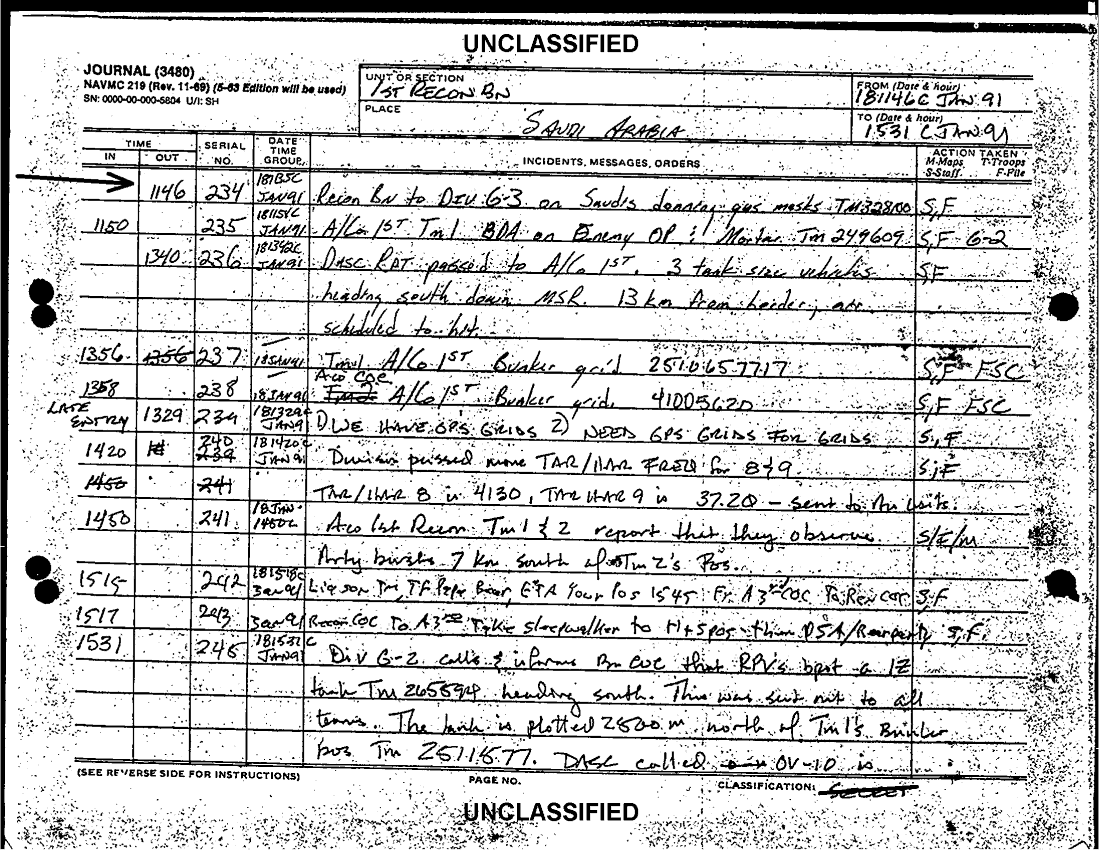 UNCLASSIFIED
JOURNAL (3480)
NAVMC 219 (Rev. 11-69) (5-63 Edition will be used)
SN: 0000-00-000-5804 U/I: SH
UNIT OR SECTION
1ST RECON BN
FROM (Date & hour)
181146C JAN 91
PLACE
SAUDI ARABIA
TO (Date & hour)
1531 C JAN 91
TIME
IN OUT
SERIAL NO.
DATE TIME GROUP
INCIDENTS, MESSAGES, ORDERS
ACTION TAKEN
M-Maps T-Troops
S-Staff F-File
1146 234 JAN 91 Recon Bn to Div G-3 on Saudis donning gas masks S,F
1150 235 JAN 91 A/Co 1ST Tm 1 BDA on Enemy OP & Mortar Tm 249609 S,F G-2
1340 236 181342C JAN 91 DASC RPT passed to A/Co 1ST. 3 tank size vehicles S,F
heading south down MSR. 13 km from border, air
scheduled to hit.
1356 1356 237 18 JAN 91 Tm 1 A/Co 1ST Bunker grid S,F FSC
A co COC
1358 238 18 JAN 91 Tm 2 A/Co 1ST Bunker grid 41005620 S,F FSC
LATE ENTRY 1329 239 181329C JAN 91 1) WE HAVE GPS GRIDS 2) NEED GPS GRIDS FOR GRIDS S,F
1420 240 239 181420C JAN 91 Division passed more TAR/HAR FREQ for 8 & 9. S,F
1450 241 TAR/HAR 8 is 4130, TAR HAR 9 is 37.20 – sent to units.
1450 241 18 JAN 1450C A co 1st Recon Tm 1 & 2 report that they observe S/F/M
Arty bursts 7 km south of Tm 2's Pos.
1515 242 181515C Jan 91 Liaison Tm, TF Papa Bear, ETA Your Pos 1545 S,F
1517 243 Jan 91 Recon COC To Take sleepwalker to H+S pos then S,F
1531 245 181531C JAN 91 Div G-2 calls & informs Bn COC that RPV's spot a
tank Tm 265594 heading south. This was sent out to all
teams. The tank is plotted 2800 m north of Tm 1's Bunker
pos Tm DASC called OV-10 is
(SEE REVERSE SIDE FOR INSTRUCTIONS)
PAGE NO.
CLASSIFICATION: SECRET
UNCLASSIFIED